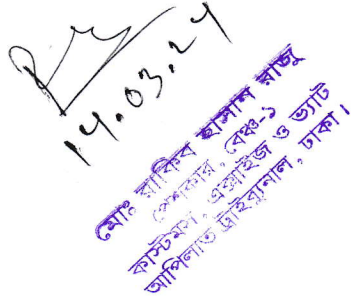 14.03.24
মোঃ রাকিব হাসান রাজু
পেশকার, বেঞ্চ-১
কাস্টমস, এক্সাইজ ও ভ্যাট
আপিলাত ট্রাইব্যুনাল, ঢাকা।